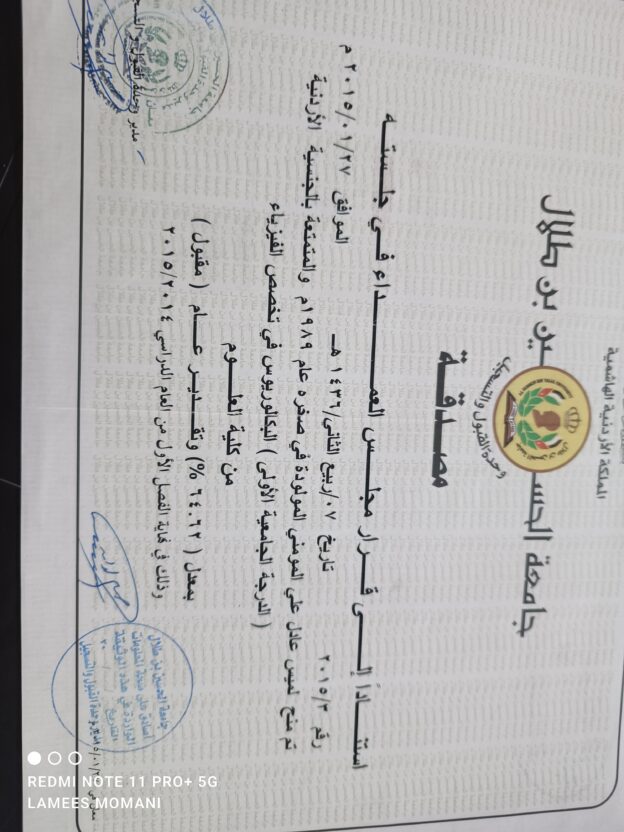 المملكة الأردنية الهاشمية
جامعة الحسين بن طلال
وحدة القبول والتسجيل
مصدقة
استناداً إلى قرار مجلس العمداء في جلسته
رقم ٢٠١٥/٣ تاريخ ٠٧/ربيع الثاني/١٤٣٦ هـ الموافق ٢٠١٥/٠١/٢٧ م
تم منح لميس عادل علي المومني المولودة في صخره عام ١٩٨٩م والمتمتعة بالجنسية الأردنية
( الدرجة الجامعية الأولى ) البكالوريوس في تخصص الفيزياء
من كلية العلوم
بمعدل ( ٦٤.٦٢ %) وتقدير عام ( مقبول )
وذلك في نهاية الفصل الأول من العام الدراسي ٢٠١٥/٢٠١٤
مدير وحدة القبول و
جامعة الحسين بن طلال
الواردة في هذه الوثيقة
وحدة القبول والتسجيل
REDMI NOTE 11 PRO+ 5G
LAMEES.MOMANI